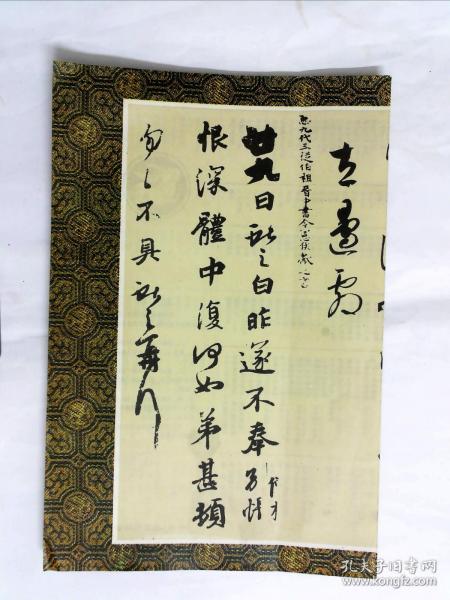 臣九代三從伯祖晉中書令憲侯獻之書
廿九日獻之白昨遂不奉別悵
恨深體中復何如弟甚頓
匆匆不具獻之再拜
孔夫子旧书网
kongfz.com